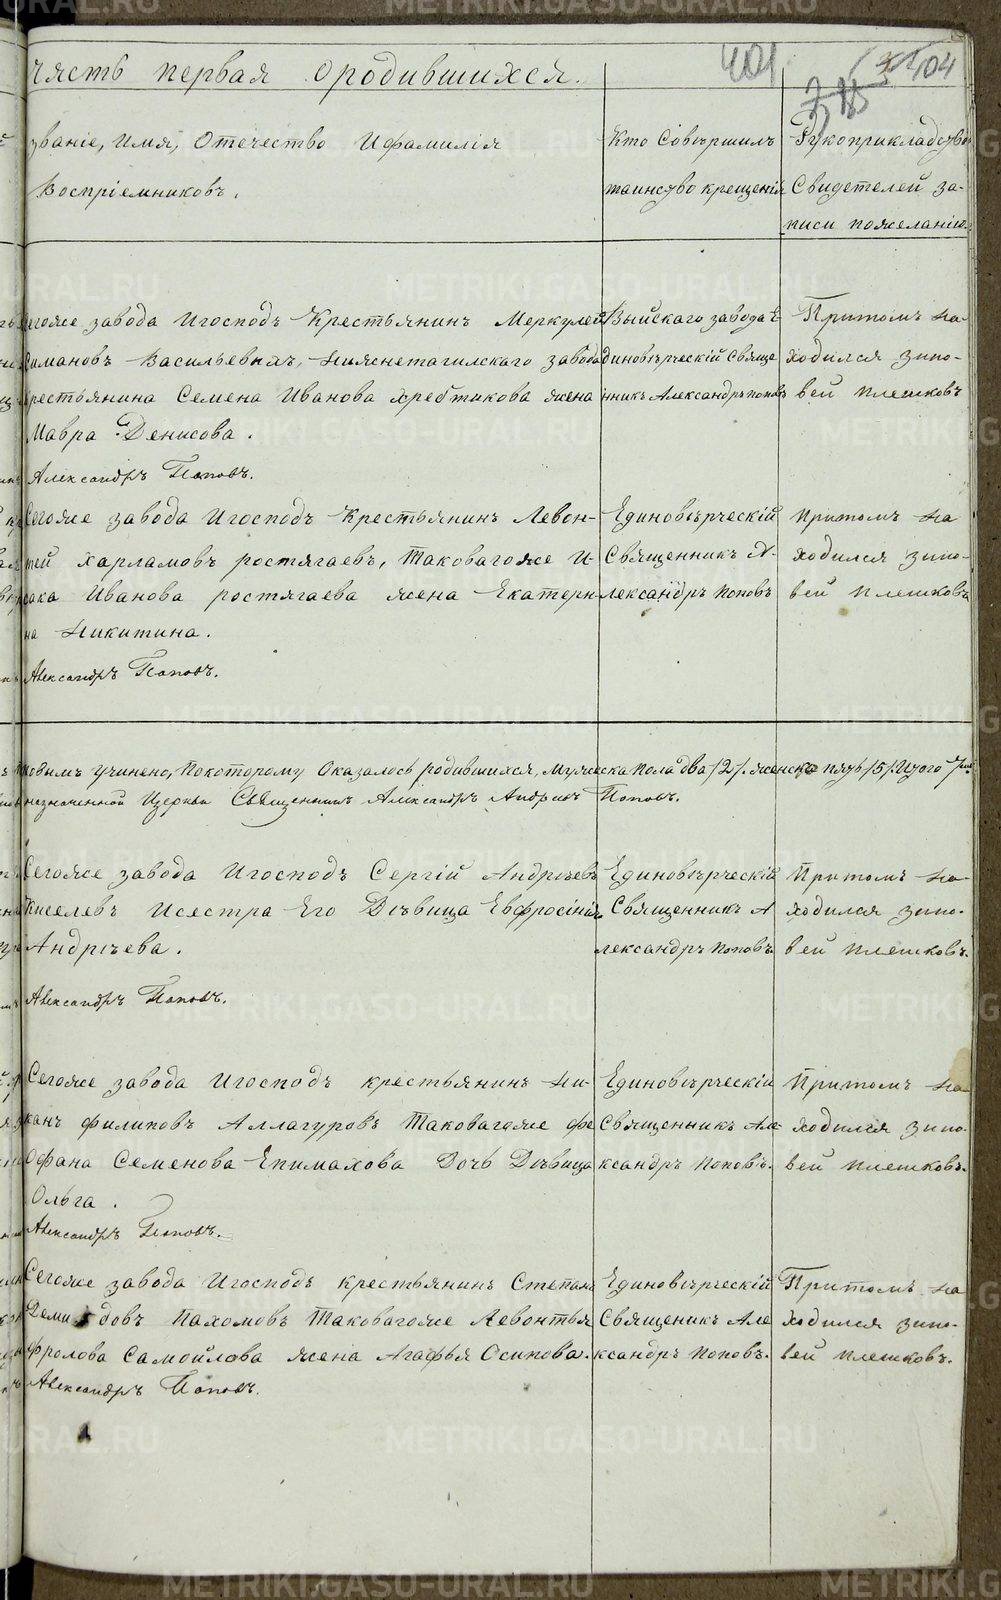 часть первая о родившихся.
401
404
званіе, Имя, Отечество И фамилія
Воспріемниковъ.
Кто Совершилъ
таинство крещенія
Рукоприкладство
Свидетелей за-
писи пожеланію.
Сегоже завода Игосподъ Крестьянинъ Меркулей
Симановъ Васильевыхъ, Нижнетагилскаго завода
крестьянина Семена Иванова хребтикова жена
Мавра Денисова.
Александръ Поповъ.
Выйскаго завода Е-
диноверческій Свяще
нникъ Александръ поповъ
Притомъ на-
ходился зино-
вей плешковъ
Сегоже завода Игосподъ Крестьянинъ Левон-
тей Харламовъ ростягаевъ, таковагоже И-
сака Иванова ростягаева жена Екатери-
на Никитина.
Александръ Поповъ.
Единоверческій
Священникъ А-
лександръ поповъ
Притомъ на
ходился зино-
вей плешковъ
новымъ учинено, Покоторому Оказалось родившихся, Мужеска пола два /2/. женска пять /5/. Итого 7м
назначенной Церкви Священникъ Александръ Андреевъ Поповъ.
Сегоже завода Игосподъ Сергій Андреевъ
Киселевъ Исестра Его Девица Евфросинія
Андреева.
Александръ Поповъ.
Единоверческій
Священникъ А
лександръ поповъ
Притомъ на-
ходился зино-
вей плешковъ.
Сегоже завода Игосподъ крестьянинъ Ни-
канъ филиповъ Аллагуровъ таковагоже фе
Офана Семенова Епимахова Дочь Девица
Ольга.
Александръ Поповъ.
Единоверческій
Священникъ Але-
ксандръ поповъ.
Притомъ на-
ходился зино-
вей плешковъ.
Сегоже завода Игосподъ крестьянинъ Степанъ
Демидовъ Пахомовъ таковагоже Левонтья
фролова Самойлова жена Агафья Осипова.
Александръ Поповъ.
Единоверческій
Священикъ Але
ксандръ поповъ.
Притомъ на
ходился зино-
вей плешковъ.
METRIKI.GASO-URAL.RU